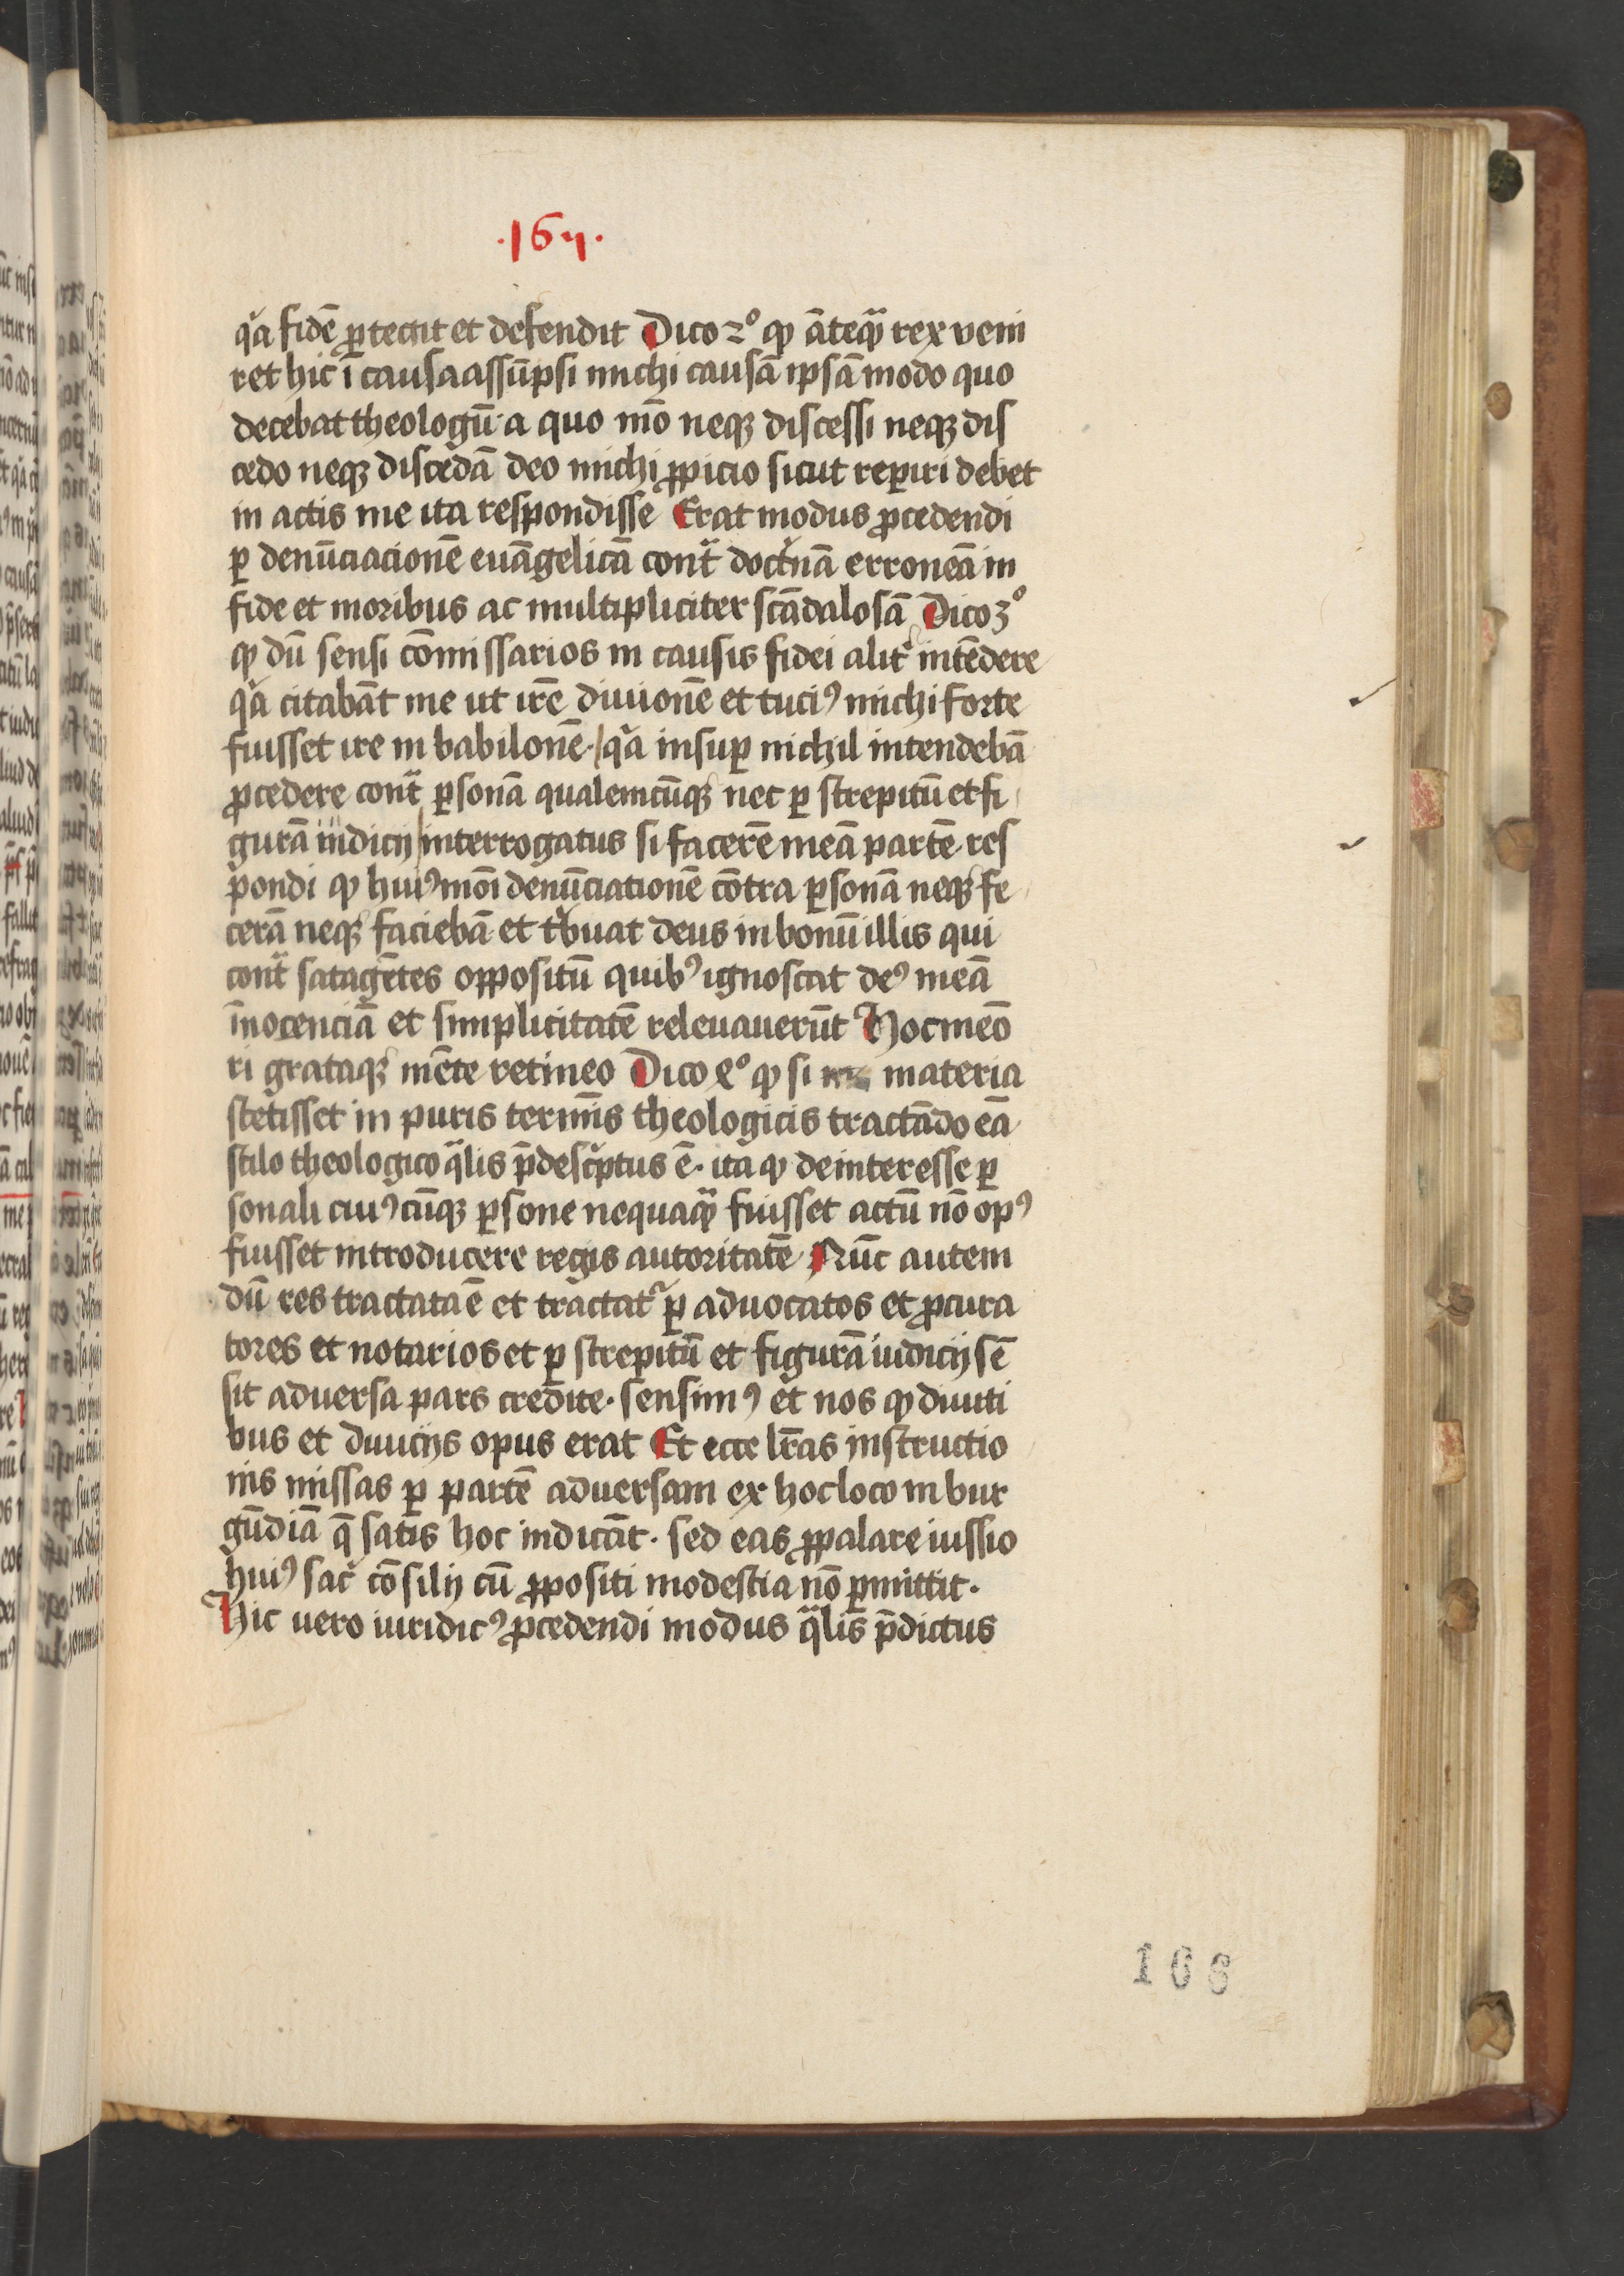 ·167·
qa fidē ꝓtegit et defendit Dico 2° ꝙ āteqͣ rex veni
ret hic ī causa assūpsi michi causā ipsā modo quo
decebat theologū· a quo mō neqꝫ discessi neqꝫ dis
cedo neqꝫ discedā deo michi ꝓpicio sicut reꝑiri debet
in actis me ita respondisse Erat modus ꝓcedendi
ꝑ denūciacionē euāgelicā contͣ doctͥnā erroneā in
fide et moribus ac multipliciter scādalosā Dico 3°
ꝙ dū sensi cōmissarios in causis fidei alit᷑ intēdere
qͥa citabāt me ut irē diuionē et tuciꝰ michi forte
fuisset ire in babilonē· / qͥa insuꝑ nichil intendebā
ꝓcedere contͣ ꝑsonā qualemcūqꝫ nec ꝑ strepitū et fi
gurā iudicij / interrogatus si facerē meā partē· res
pondi ꝙ huiꝰmōi denūciationē cōtra ꝑsonā neqꝫ fe
cerā neqꝫ faciebā et tͥbuat deus in bonū illis qui
contͣ satagētes oppositū quibꝰ ignoscat deꝰ meā
īnocenciā et simplicitatē releuauerūt Hoc meō
ri grataqꝫ mēte retineo Dico 4° ꝙ si materia
stetisset in puris termīs theologicis tractādo eā
stilo theologico qͣlis p̄descͥptus ē· ita ꝙ de interesse ꝑ
sonali cuiꝰcūqꝫ ꝑsone nequaqͣ fuisset actū nō opꝰ
fuisset introducere regis autoritatē Nūc autem
dū res tractata ē et tractat᷑ ꝑ aduocatos et ꝓcura
tores et notarios et ꝑ strepitū et figurā iudicij sē
sit aduersa pars credite· sensimꝰ et nos ꝙ diuiti
bus et diuicijs opus erat Et ecce lr̄as instructio
nis missas ꝑ partē aduersam ex hoc loco in bur
gūdiā q̄ satis hoc indicāt· sed eas ꝓpalare iussio
huiꝰ sacͥ cōsilij cū ꝓpositi modestia nō ꝑmittit·
Hic uero iuridicꝰ ꝓcedendi modus qͣlis p̄dictus
166